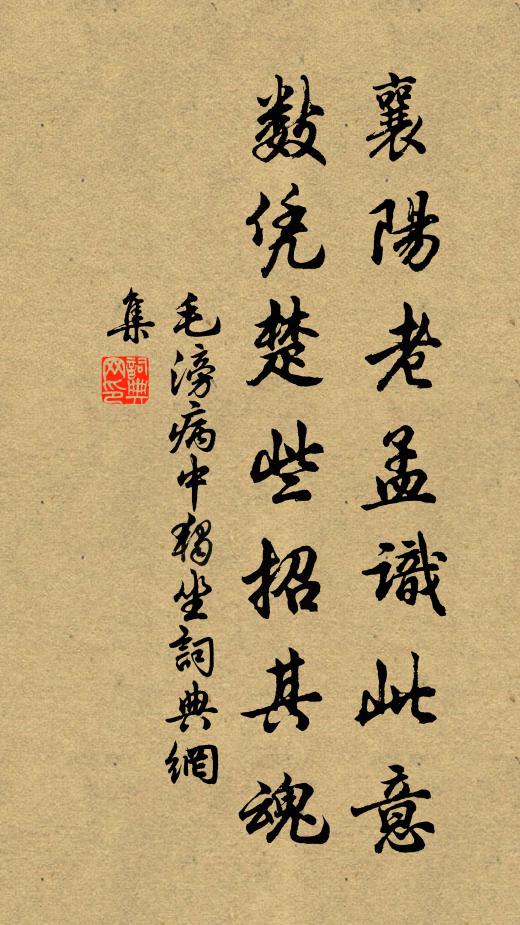 襄陽老孟識此意
数凭楚些招其魂
毛滂病中獨坐詞典網
集
詞典網印